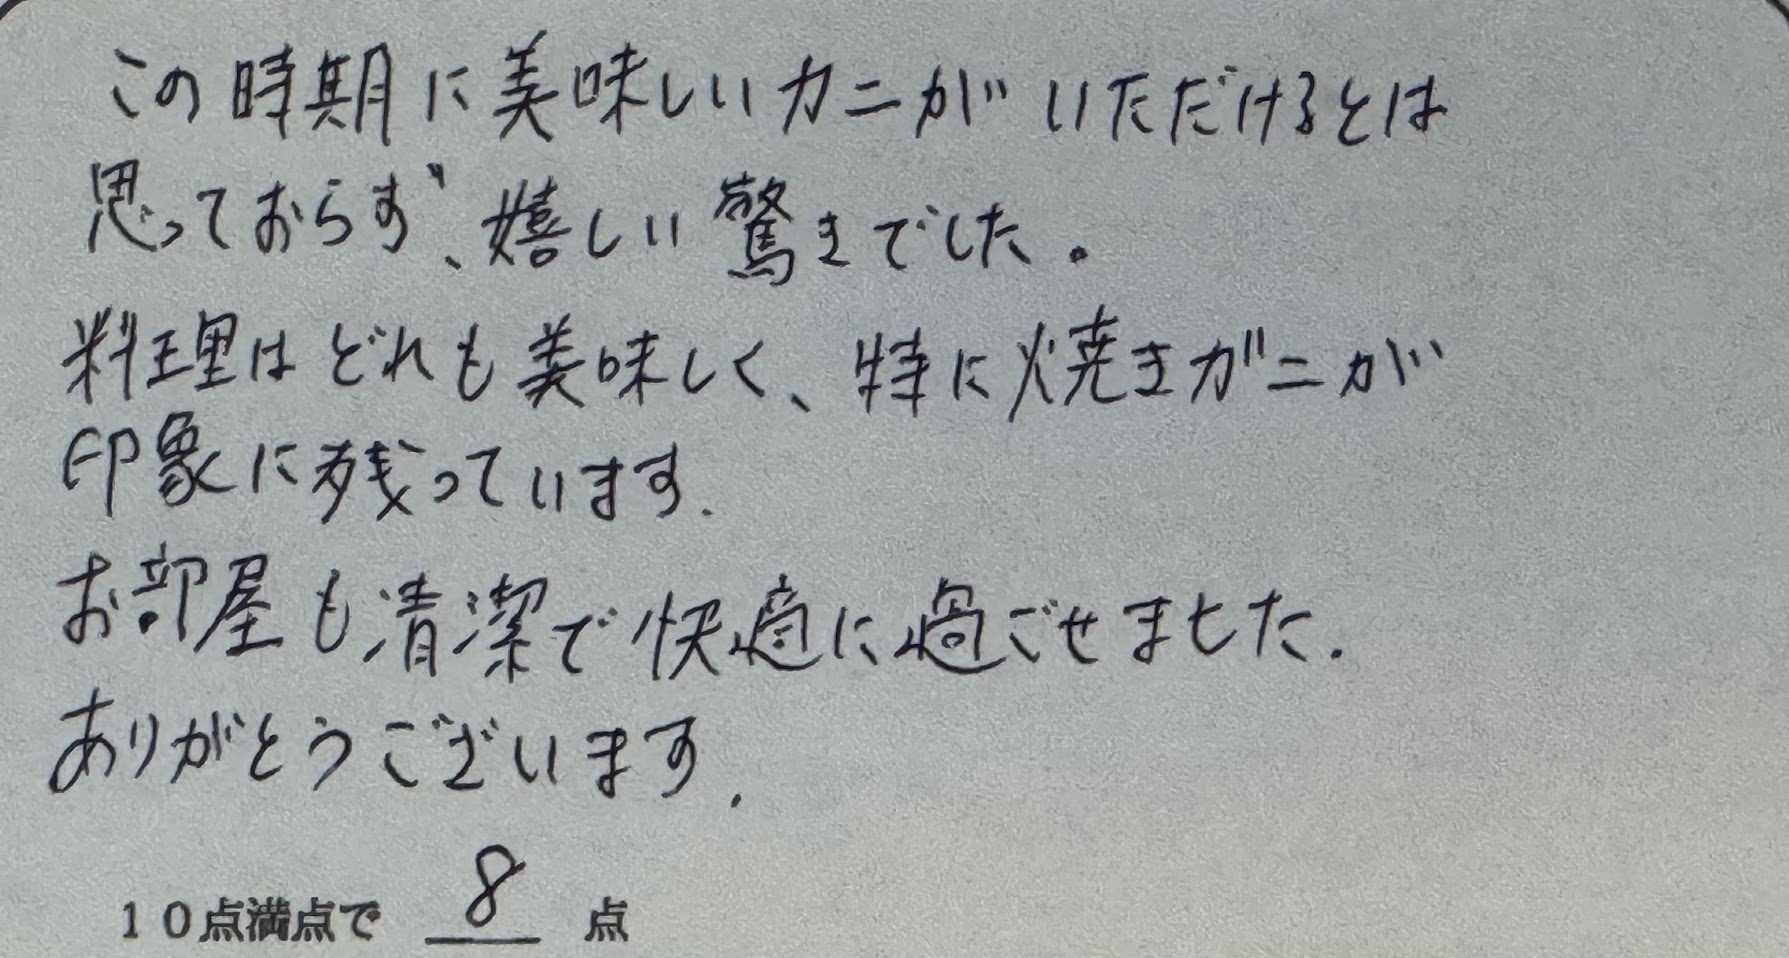 この時期に美味しいカニがいただけるとは
思っておらず、嬉しい驚きでした。
料理はどれも美味しく、特に焼きガニが
印象に残っています.
お部屋も清潔で快適に過ごせました.
ありがとうございます.
10点満点で 8 点